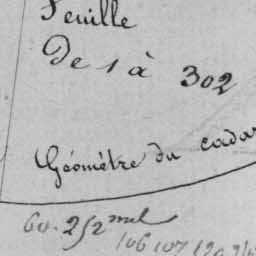 Feuille
De 1 à 302
Géomètre du cadas
60. 2/2 mel
106 107 120